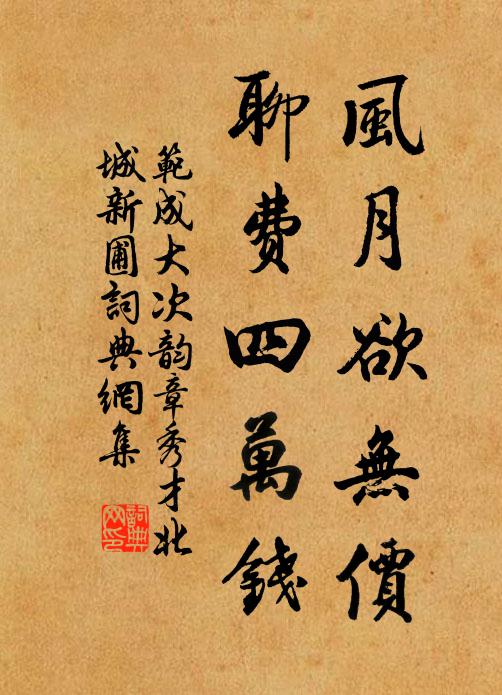 風月欲無價
聊费四萬錢
範成大次韵章秀才北
城新圃詞典網集
詞典网印